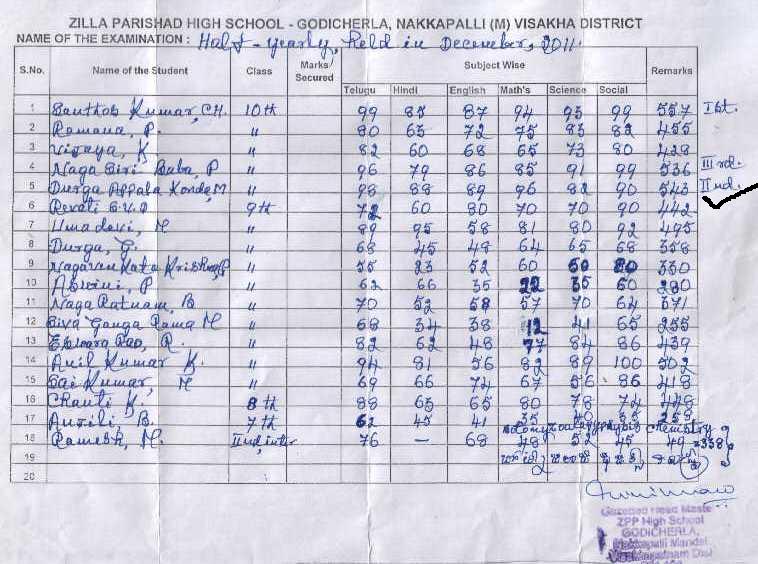 ZILLA PARISHAD HIGH SCHOOL - GODICHERLA, NAKKAPALLI (M) VISAKHA DISTRICT
NAME OF THE EXAMINATION : Half - yearly, Held in December, 2011.
S.No. Name of the Student Class Marks Secured Subject Wise Remarks
Telugu Hindi English Math's Science Social
1 Santhosh Kumar, CH. 10th 99 85 87 94 93 99 557 Ist.
2 Ramana, P. " 80 63 72 75 83 82 455
3 Vijaya, K " 82 60 68 65 73 80 428
4 Naga Siri Baba, P " 96 79 86 85 91 99 536 IIIrd.
5 Durga Appala Konda, M " 98 88 89 96 82 90 543 IInd.
6 Revati 9th 72 60 80 70 70 90 442
7 Umadevi, M " 89 95 58 81 80 92 495
8 Durga, G. " 68 45 48 64 65 68 358
9 " 55 23 52 60 50 80 330
10 Aswini, P " 62 66 35 22 35 60 280
11 Naga Ratnam, B " 70 52 58 57 70 64 371
12 Siva Ganga Rama M " 68 34 38 12 41 65 255
13 Eswara Rao, R. " 82 62 48 77 84 86 439
14 Anil Kumar K. " 94 81 56 82 89 100 502
15 Sai Kumar, M " 69 66 74 67 56 86 418
16 Chanti K. 8th 88 63 65 80 78 74 448
17 B. 7th 62 45 41 35 40 35 258
Botany Zoology Physics Chemistry
18 Ramesh, M. IInd, inter 76 – 68 48 52 45 49 =338
19
20
Gazetted Head Maste
ZPP High School
GODICHERLA,
Nakkapalli Mandal
Visakhapatnam Dist